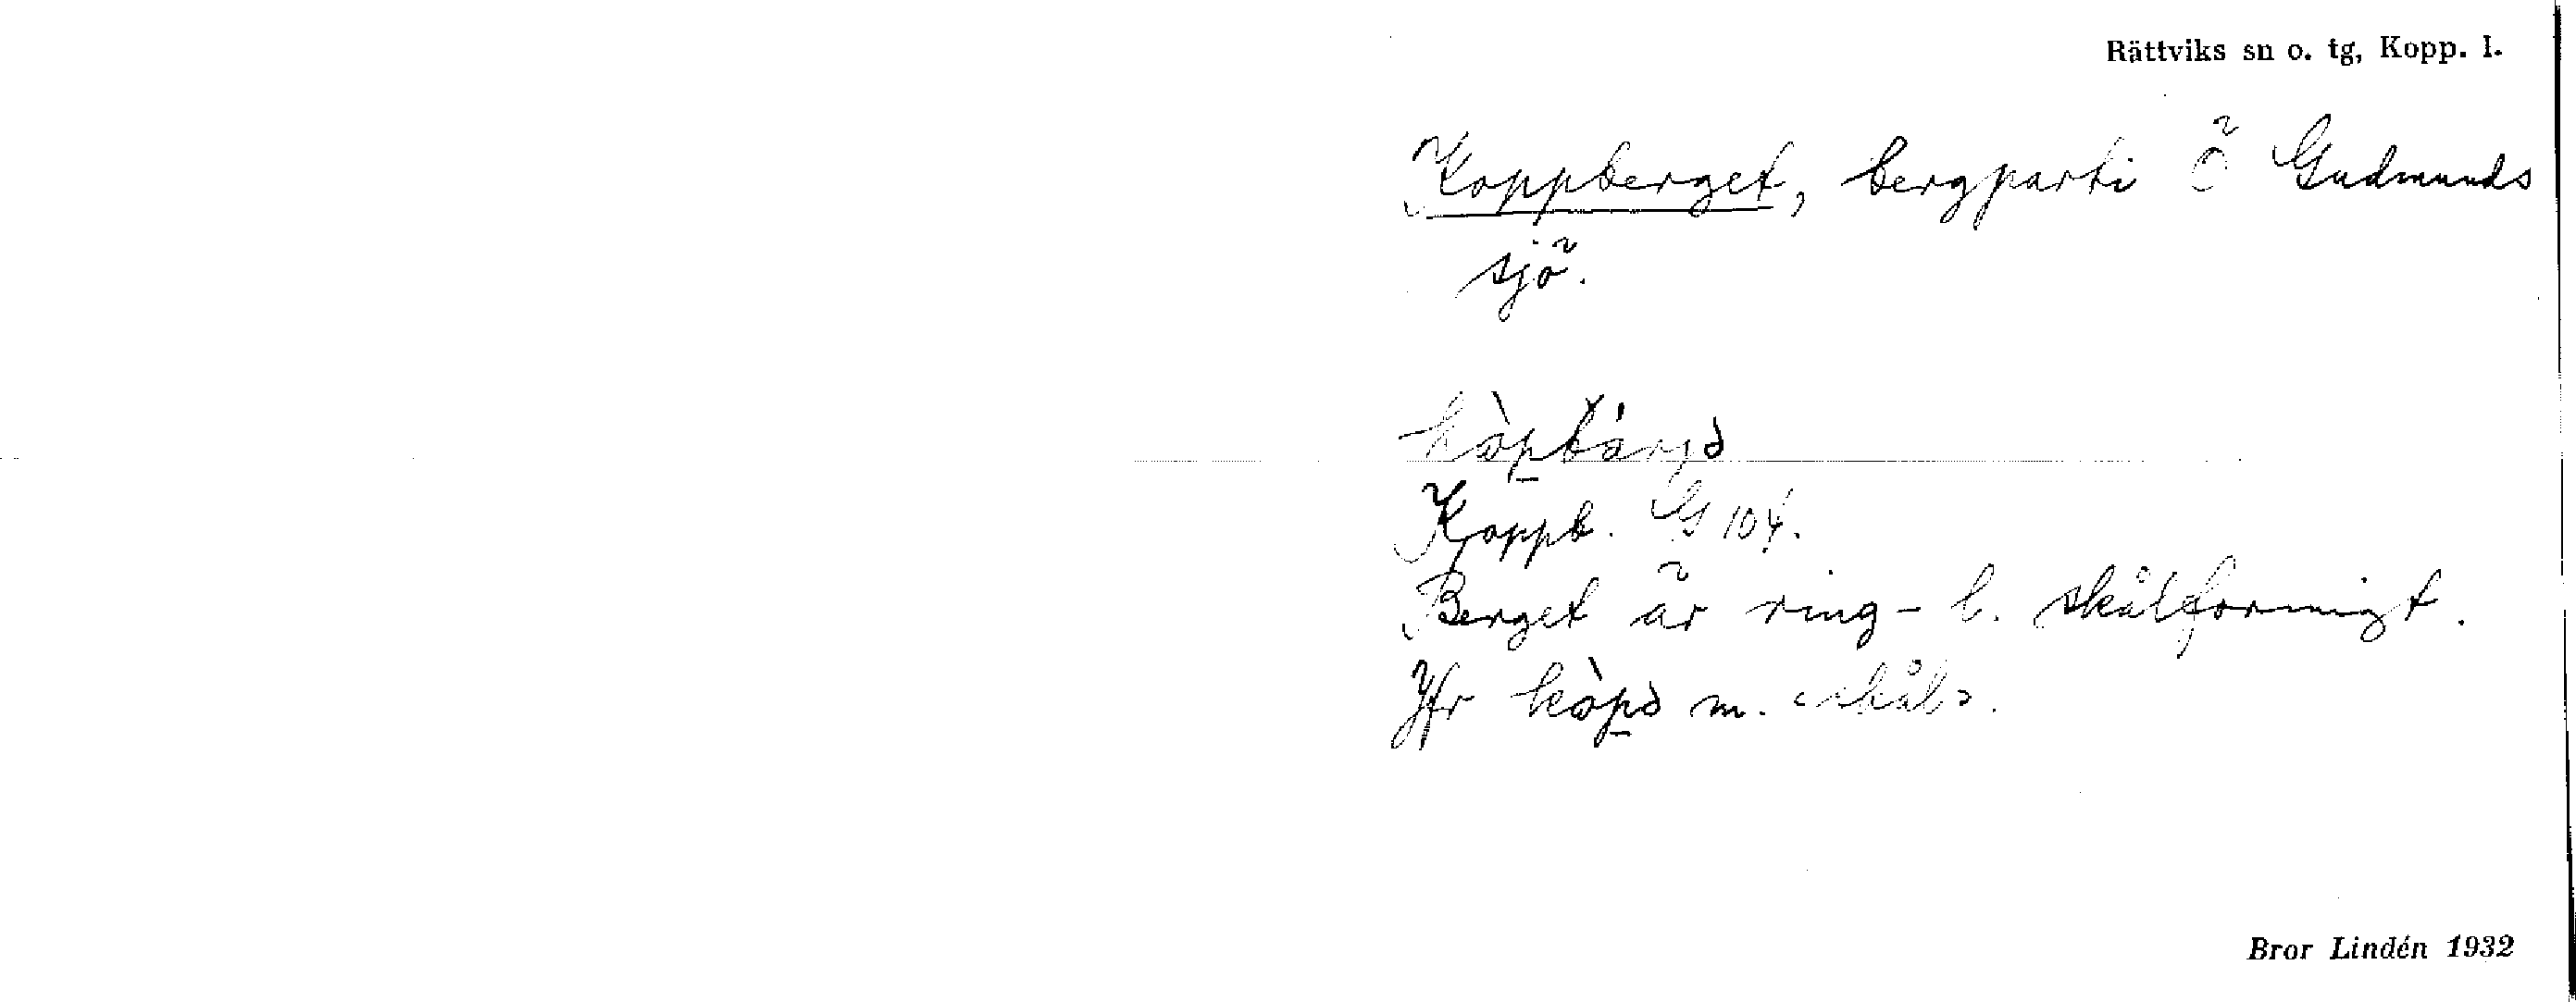 Rättviks sn o. tg, Kopp. l.
Koppberget, bergparti Ö Gudmunds
sjö.
kòpbárjə
Koppb. G 104.
Berget är ring- l. skålformigt.
Jfr kòpə m. ‹skål›.
Bror Lindén 1932